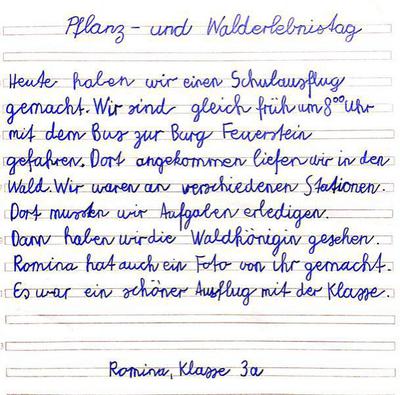 Pflanz - und Walderlebnistag
Heute haben wir einen Schulausflug
gemacht. Wir sind gleich früh um 8⁰⁰ Uhr
mit dem Bus zur Burg Feuerstein
gefahren. Dort angekommen liefen wir in den
Wald. Wir waren an verschiedenen Stationen.
Dort mussten wir Aufgaben erledigen.
Dann haben wir die Waldkönigin gesehen.
Romina hat auch ein Foto von ihr gemacht.
Es war ein schöner Ausflug mit der Klasse.
Romina, Klasse 3a